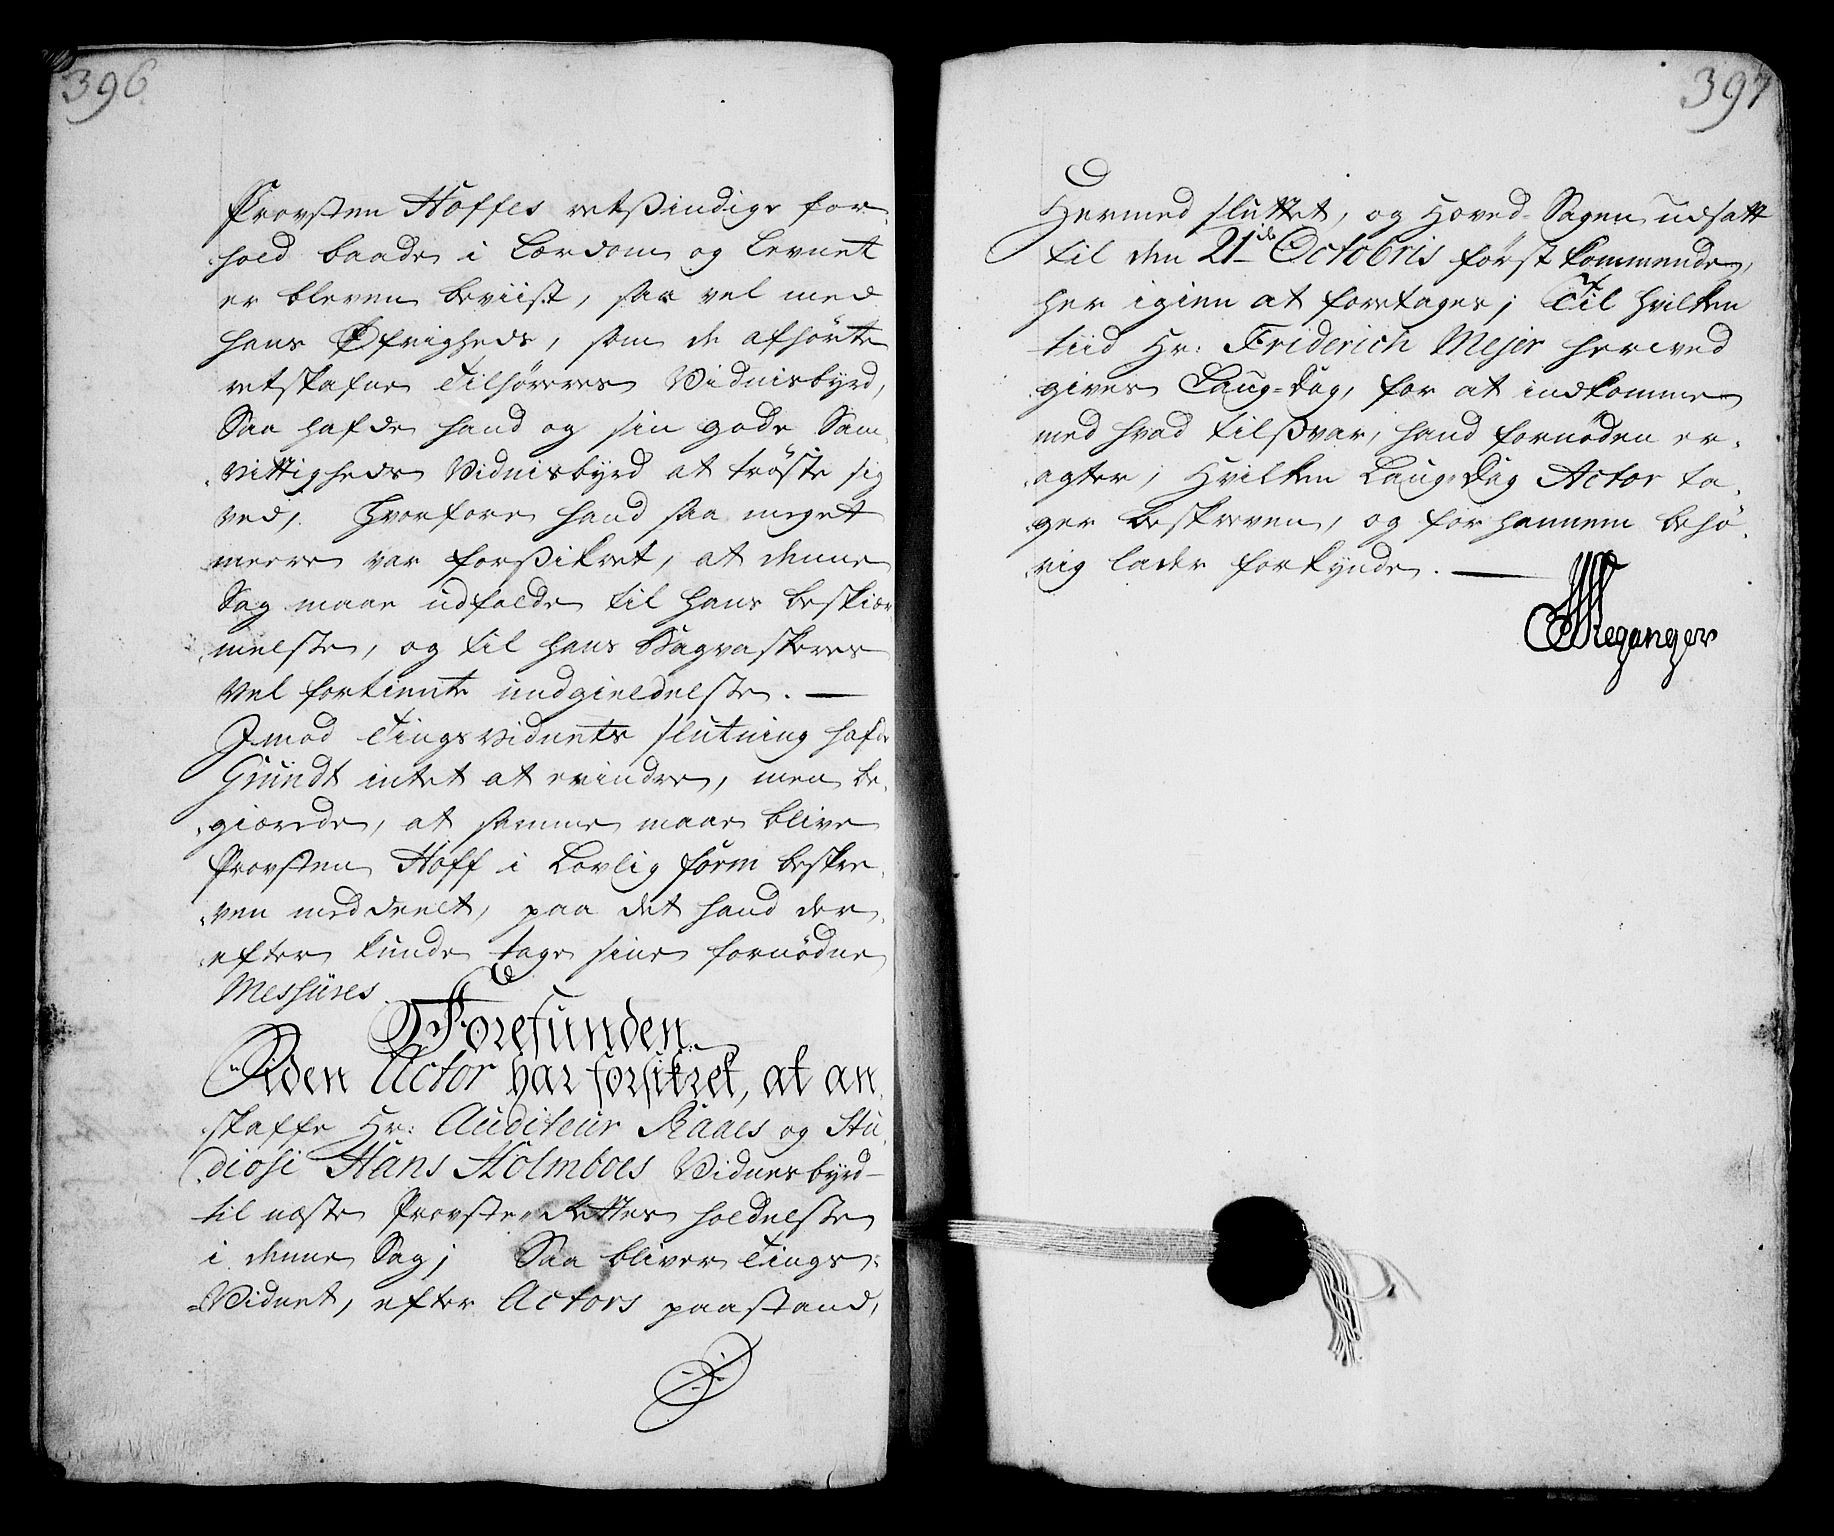 396
Provsten Hoffes retsindige for,
hold baade i Lærdom og Levnet
er bleven beviist, saa vel med
hans Øfrigheds, som de afhørte
retskafne Tilhøreres Vidnisbyrd,
Saa hafde hand og sin gode Sam,
vittigheds Vidnisbyrd at trøste sig
ved, Hvorfore hand saa meget
meere var forsikret, at denne
Sag maae udfalde til hans beskier,
melse, og til hans Bagvaskeres
vel fortiente undgieldelse. —
Imod Tingsvidnets slutning hafde
Grundt intet at erindre, men be,
giærede, at samme maae blive
Provsten Hoff i Lovlig form beskre,
ven meddeelt, paa det hand der,
efter kunde tage sine fornødne
Messures.
Forefunden.
Siden Actor har forsikret, at an,
skaffe Hr: Auditeur Raaes og Stu,
diosi Hans Holmboes Vidnesbyrd
til næste Provste-Rettes holdelse
i denne Sag; Saa bliver Tings-
Vidnet, efter Actors paastand,
397
Hermed sluttet, og Hoved-Sagen udsatt
til den 21de Octobris først kommende,
her igien at foretages; Til hvilken
tiid Hr: Friderich Mejer herved
gives Laug-Dag, for at indkomme
med hvad tilsvar, hand fornøden er,
agter, Hvilken Laug-Dag Actor ta,
ger beskreven, og for hannem behø,
rig lader forkynde. —